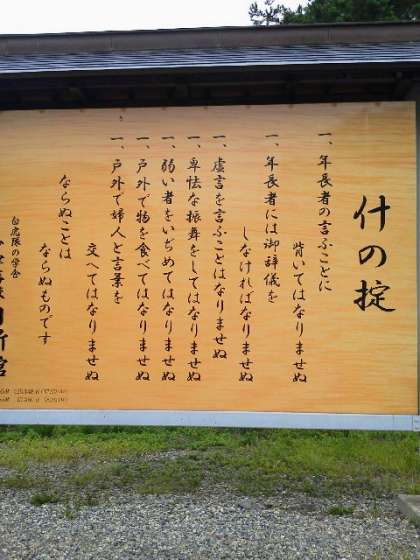 什の掟
一、年長者の言ふことに
背いてはなりませぬ
一、年長者には御辞儀を
しなければなりませぬ
一、虚言を言ふことはなりませぬ
一、卑怯な振舞をしてはなりませぬ
一、弱い者をいぢめてはなりませぬ
一、戸外で物を食べてはなりませぬ
一、戸外で婦人と言葉を
交へてはなりませぬ
ならぬことは
ならぬものです
白虎隊の学舎
日新館